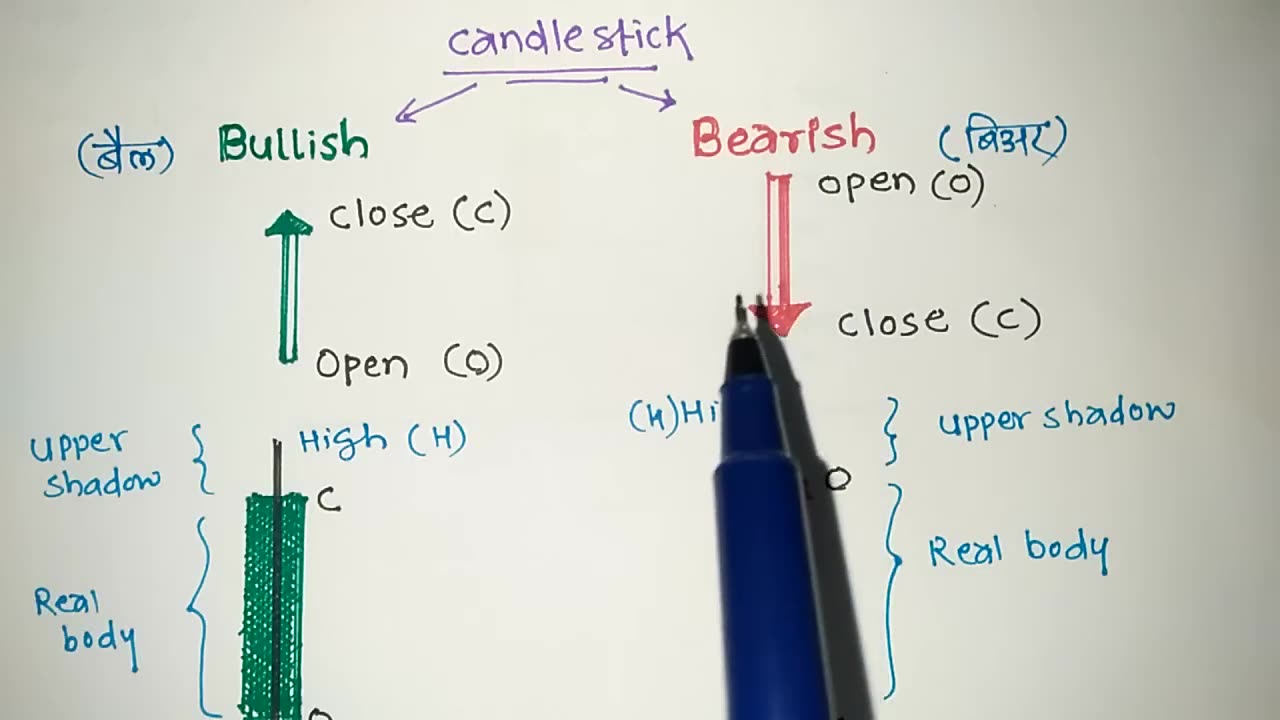 candlestick
(बैल) Bullish
Bearish (बिअर)
close (C)
open (O)
Open (O)
close (C)
upper
shadow
High (H)
C
Real
body
(H)
O
upper shadow
Real body